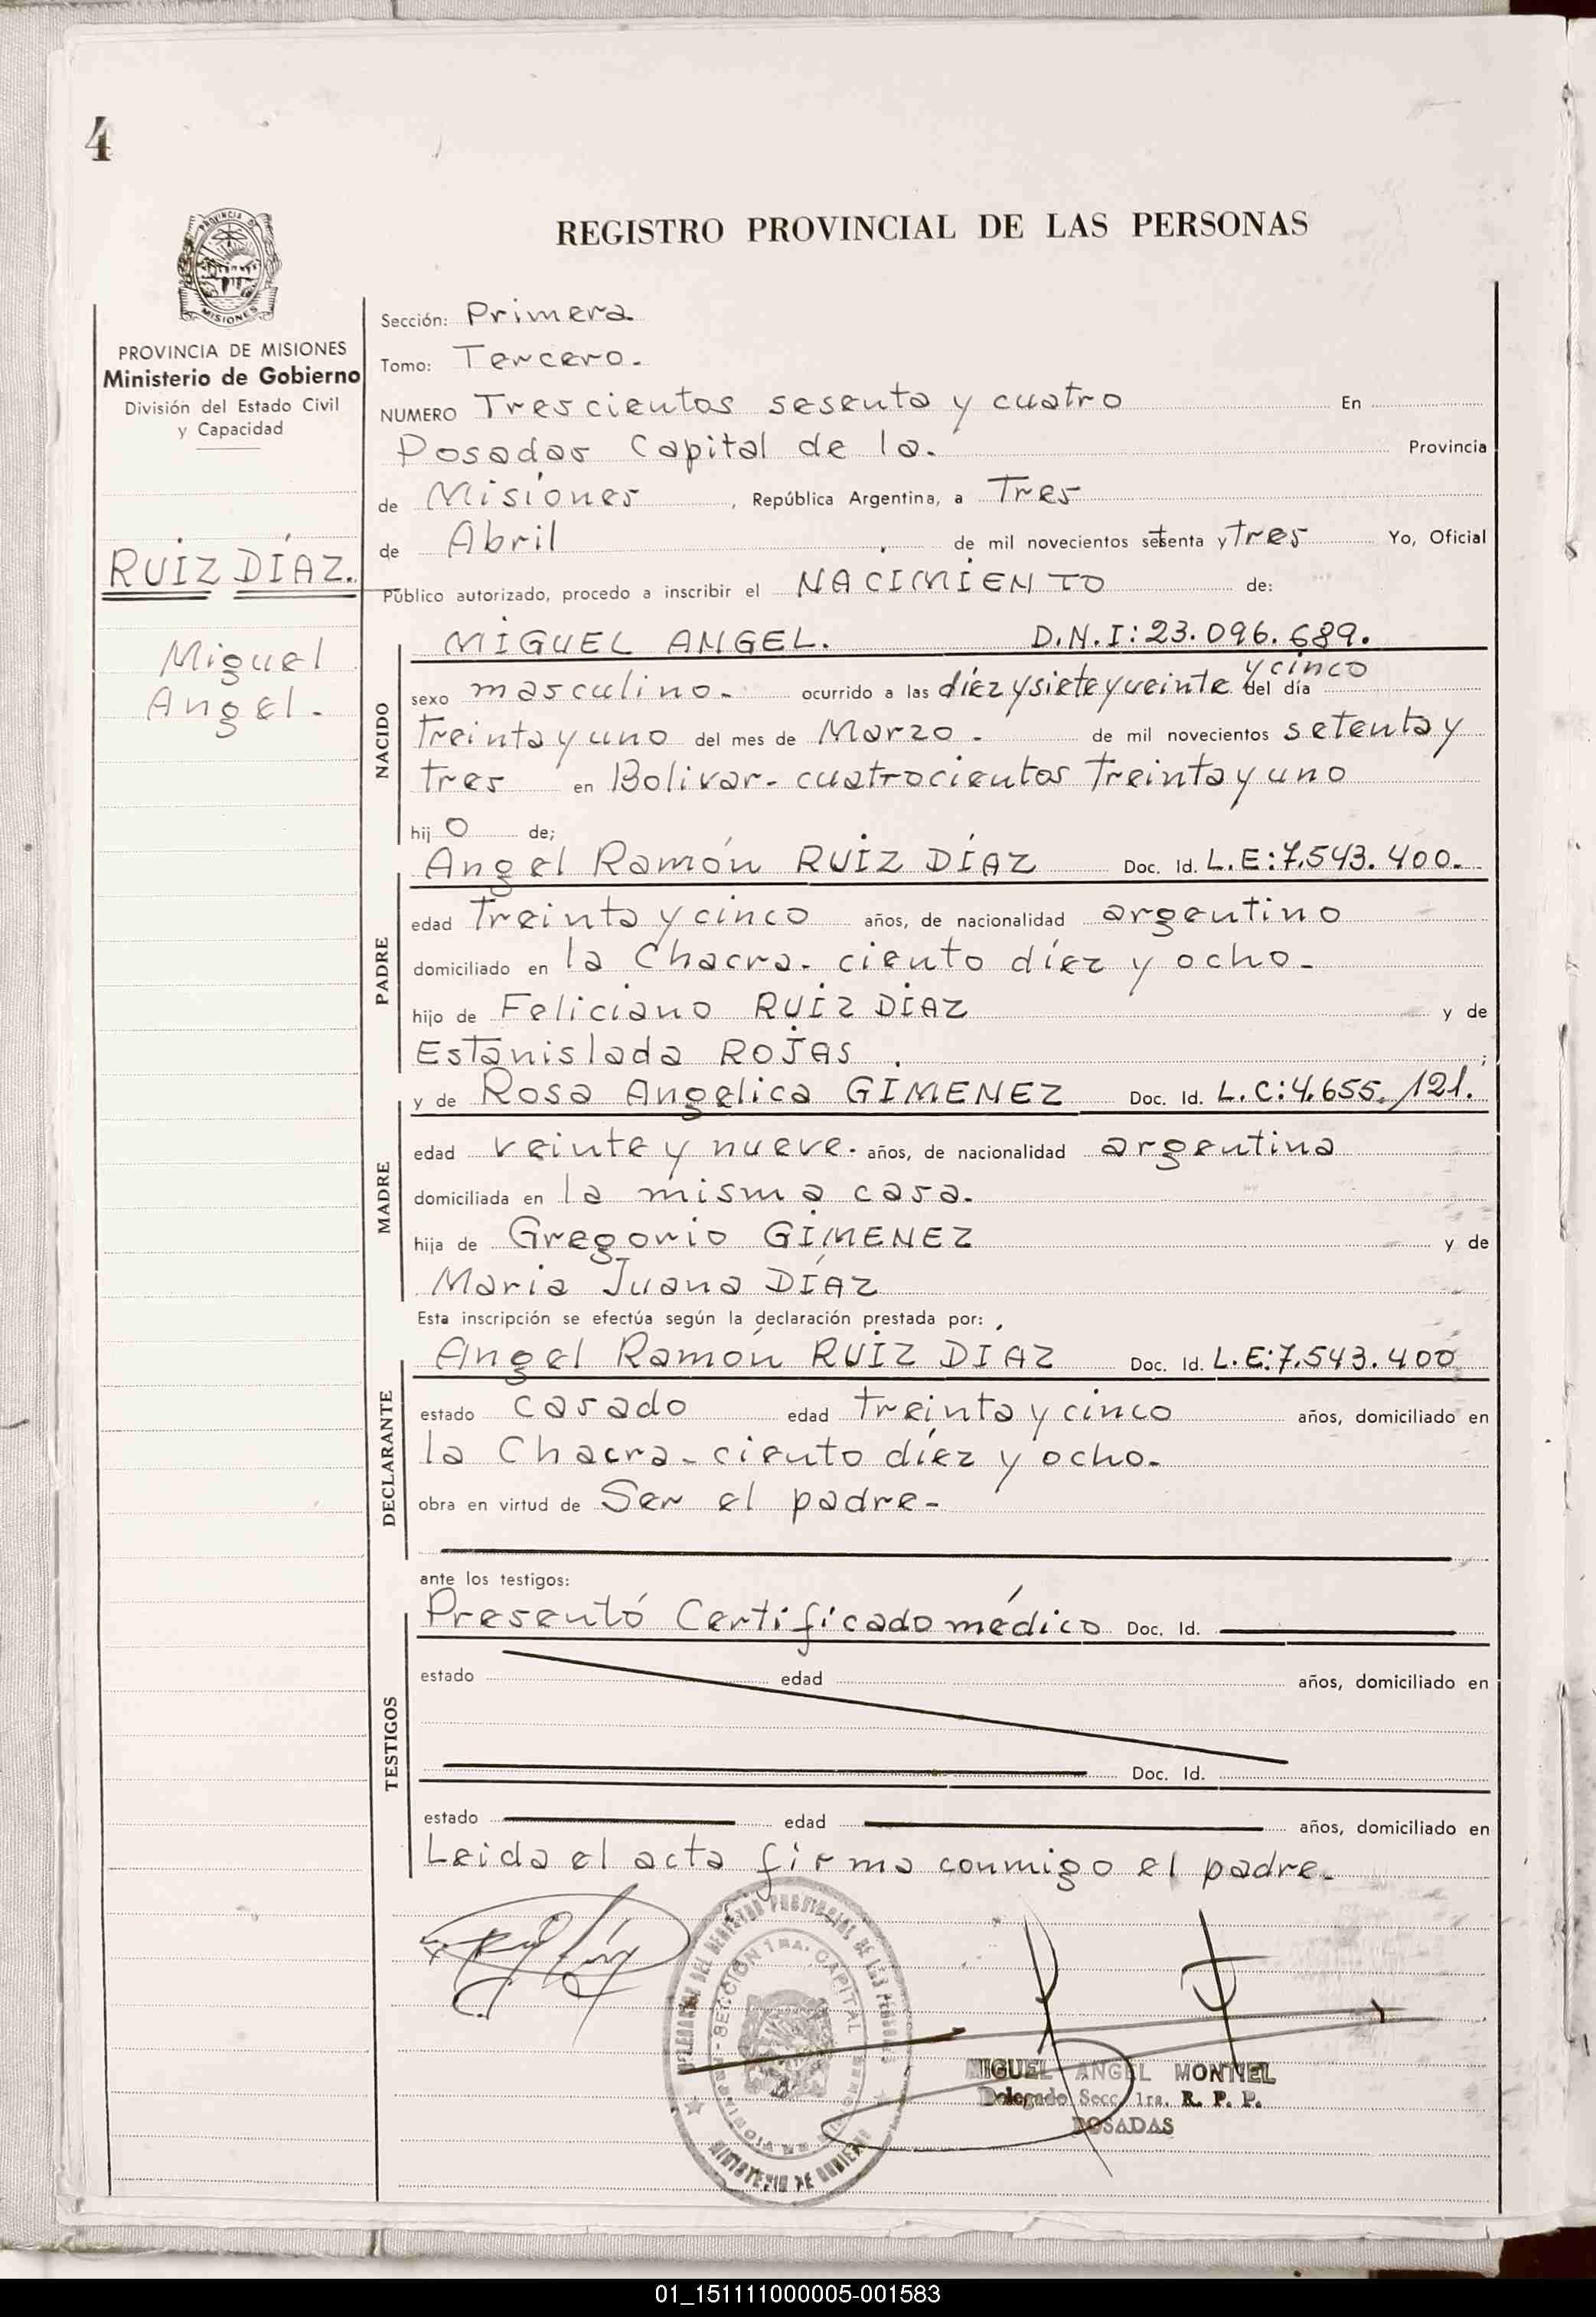 4
REGISTRO PROVINCIAL DE LAS PERSONAS
PROVINCIA DE
MISIONES
PROVINCIA DE MISIONES
Ministerio de Gobierno
División del Estado Civil
y Capacidad
RUIZ DÍAZ.
Miguel
Angel.-
Sección: Primera
Tomo: Tercero.-
NUMERO Trescientos sesenta y cuatro En
Posadas Capital de la. Provincia
de Misiones, República Argentina, a Tres
de Abril de mil novecientos setenta y tres Yo, Oficial
Público autorizado, procedo a inscribir el NACIMIENTO de:
NACIDO
MIGUEL ANGEL. D.N.I:23.096.689.
y cinco
sexo masculino.- ocurrido a las díez y siete y veinte del día
Treinta y uno del mes de Marzo.- de mil novecientos setenta y
tres en Bolivar- cuatrocientos treinta y uno
hijo de;
PADRE
Angel Ramón RUIZ DÍAZ Doc. Id. L.E:7.543.400.-
edad Treinta y cinco años, de nacionalidad argentino
domiciliado en la Chacra- ciento díez y ocho.-
hijo de Feliciano RUIZ DIAZ y de
Estanislada ROJAS ;
y de Rosa Angelica GIMENEZ Doc. Id. L.C:4.655.121.
MADRE
edad veinte y nueve. años, de nacionalidad argentina
domiciliada en la misma casa.
hija de Gregorio GIMENEZ y de
Maria Juana DÍAZ
Esta inscripción se efectúa según la declaración prestada por:
DECLARANTE
Angel Ramón RUIZ DIAZ Doc. Id. L.E:7.543.400
estado casado edad Treinta y cinco años, domiciliado en
la Chacra- ciento díez y ocho.-
obra en virtud de Ser el padre-
ante los testigos:
TESTIGOS
Presentó Certificado médico Doc. Id.
estado edad años, domiciliado en
Doc. Id.
estado edad años, domiciliado en
Leida el acta firma conmigo el padre.-
SECCION 1RA. CAPITAL
MINISTERIO DE GOBIERNO
MIGUEL ANGEL MONTIEL
Delegado Secc. 1ra. R. P. P.
POSADAS
01_151111000005-001583